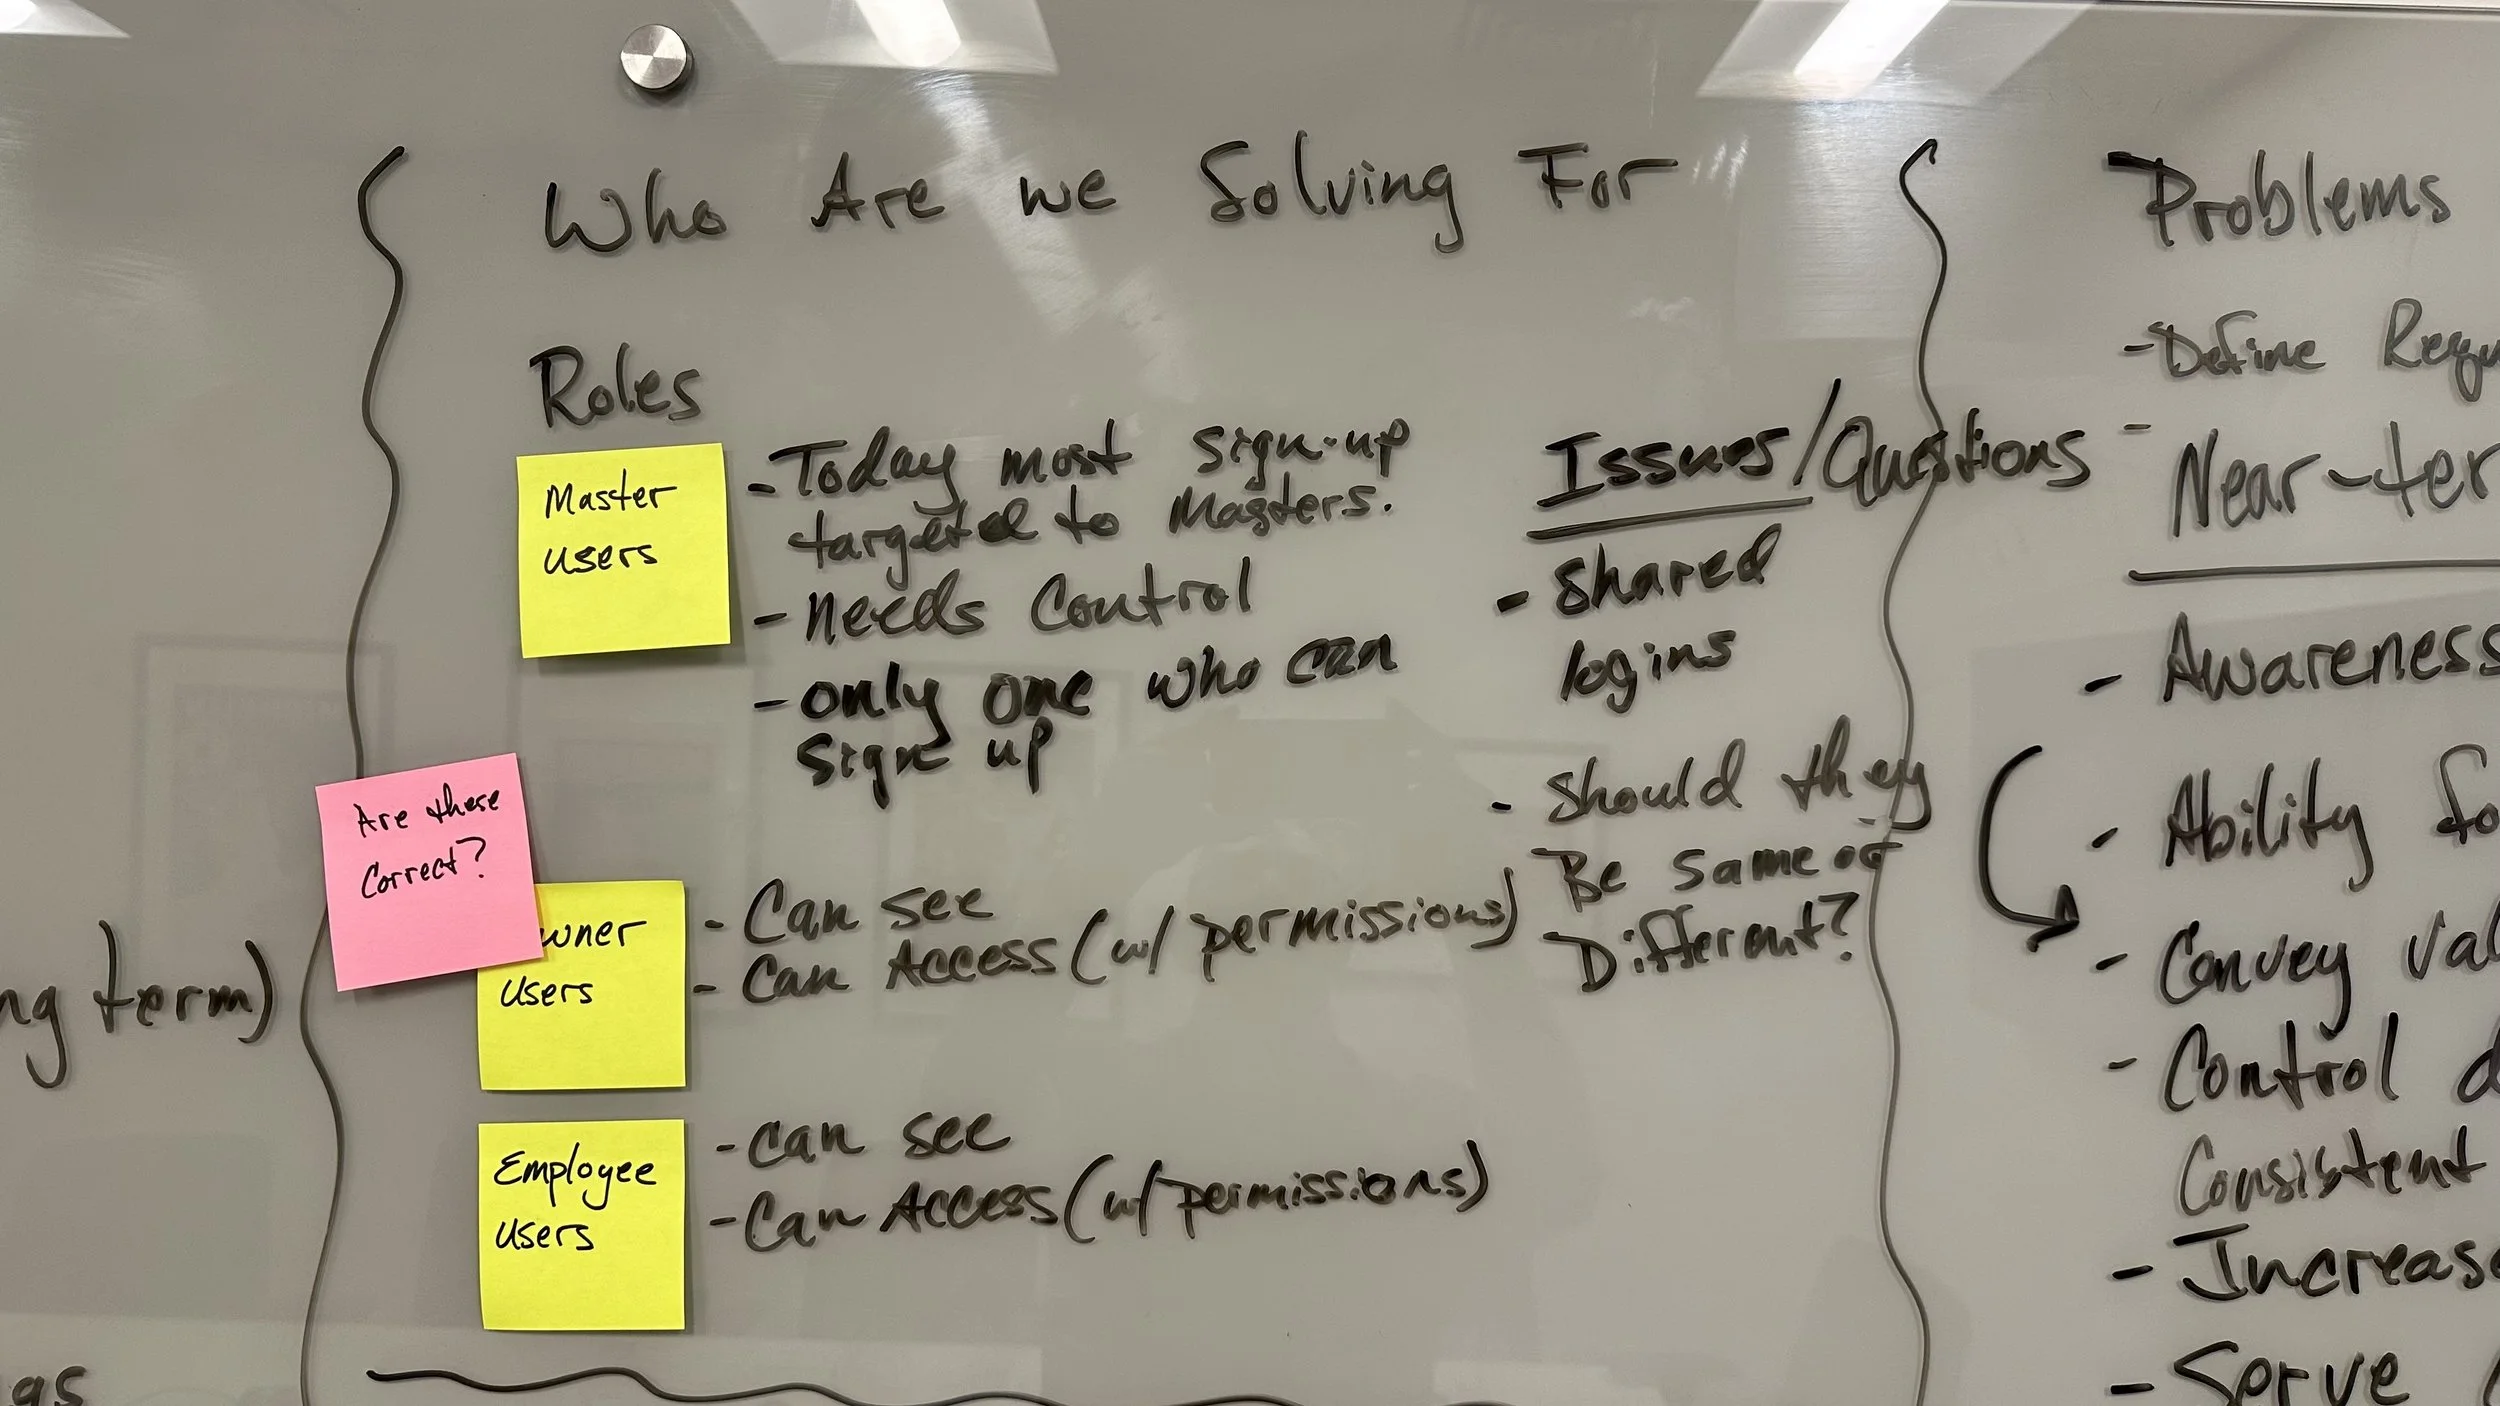 Who Are we Solving For
Roles
Master
users
- Today most sign-up
targeted to Masters.
- Needs Control
- only one who can
sign up
Are these
Correct?
wner
users
- Can see
- Can Access (w/ permissions)
Employee
users
- Can see
- Can Access (w/ permissions)
Issues/Questions
- Shared
logins
- Should they
Be same or
Different?
term)
Problems
- Define
-
Near-ter
- Awareness
- Ability
- Convey
- Control
Consistent
- Increase
- Serve